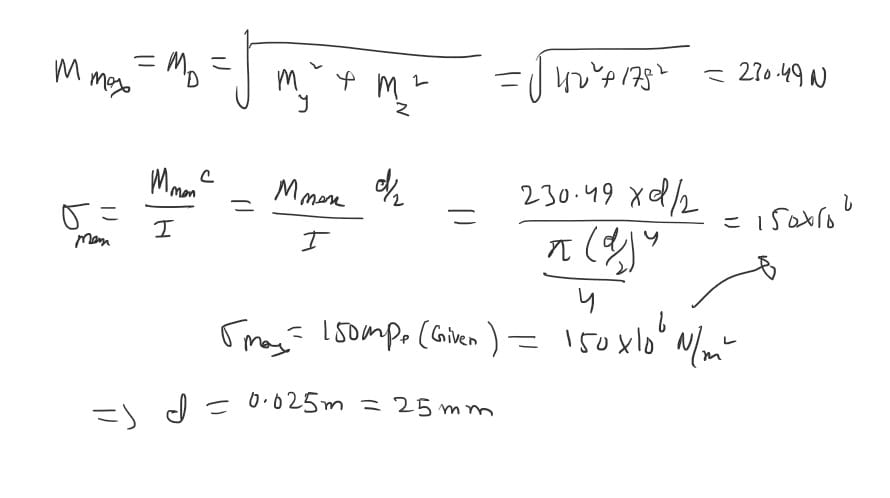 M max = M_D = √(M_y² + M_z²) = √(42² + 175²) = 230.49 N
σ max = M max c / I = M max d/2 / I = 230.49 x d/2 / (π (d/2)⁴ / 4) = 150x10⁶
σ max = 150 MPa (Given) = 150 x 10⁶ N/m²
=> d = 0.025m = 25 mm